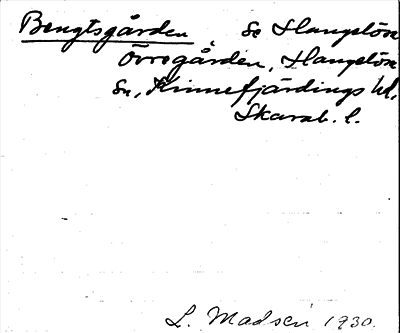 Bengtsgården, se Hangelösa
Övregården, Hangelösa
sn, Kinnefjärdings hd,
Skarab. l.
L. Madsen 1930.